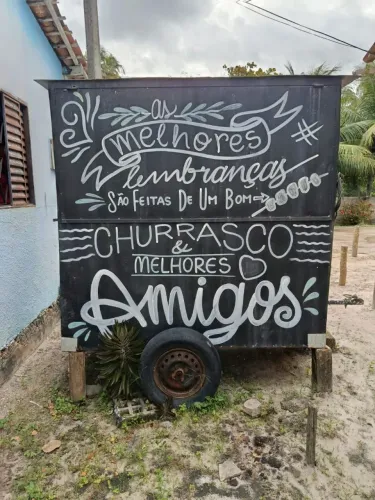 as
melhores
lembranças
São Feitas De Um Bom
CHURRASCO
&
MELHORES
Amigos